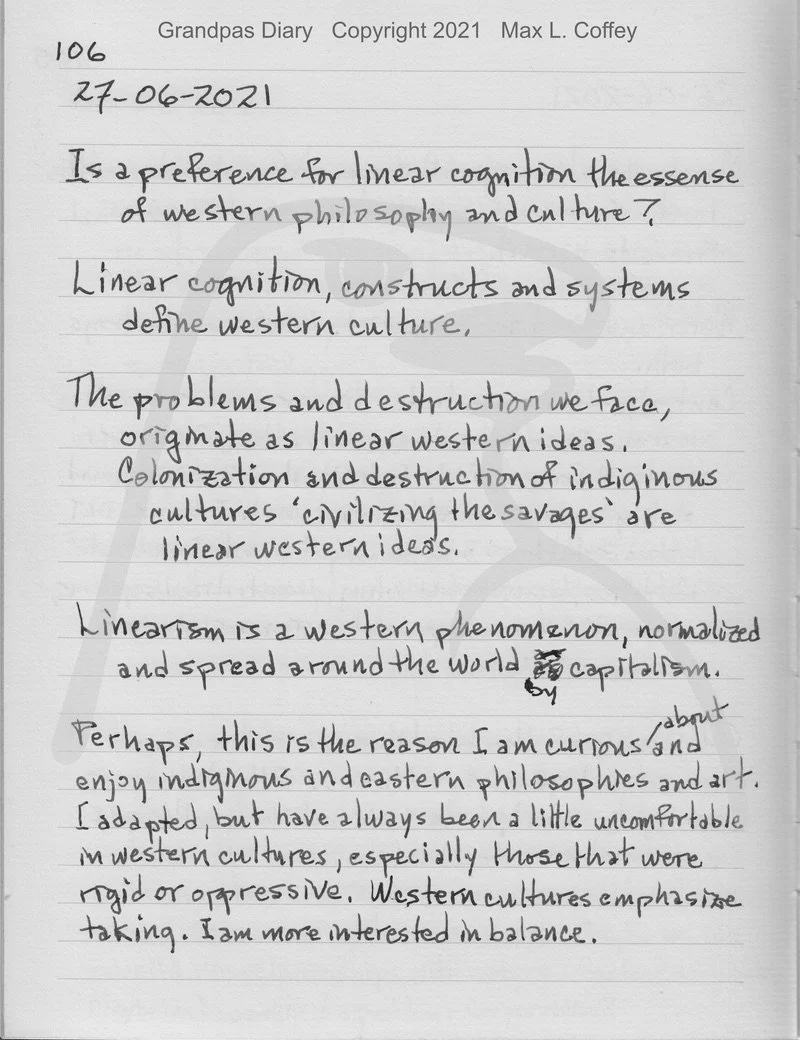 Grandpas Diary Copyright 2021 Max L. Coffey
106
27-06-2021
Is a preference for linear cognition the essense
of western philosophy and culture?
Linear cognition, constructs and systems
define western culture.
The problems and destruction we face,
originate as linear western ideas.
Colonization and destruction of indiginous
cultures 'civilizing the savages' are
linear western ideas.
Linearism is a western phenomenon, normalized
and spread around the world by capitalism.
Perhaps, this is the reason I am curious about and
enjoy indiginous and eastern philosophies and art.
I adapted, but have always been a little uncomfortable
in western cultures, especially those that were
rigid or oppressive. Western cultures emphasize
taking. I am more interested in balance.